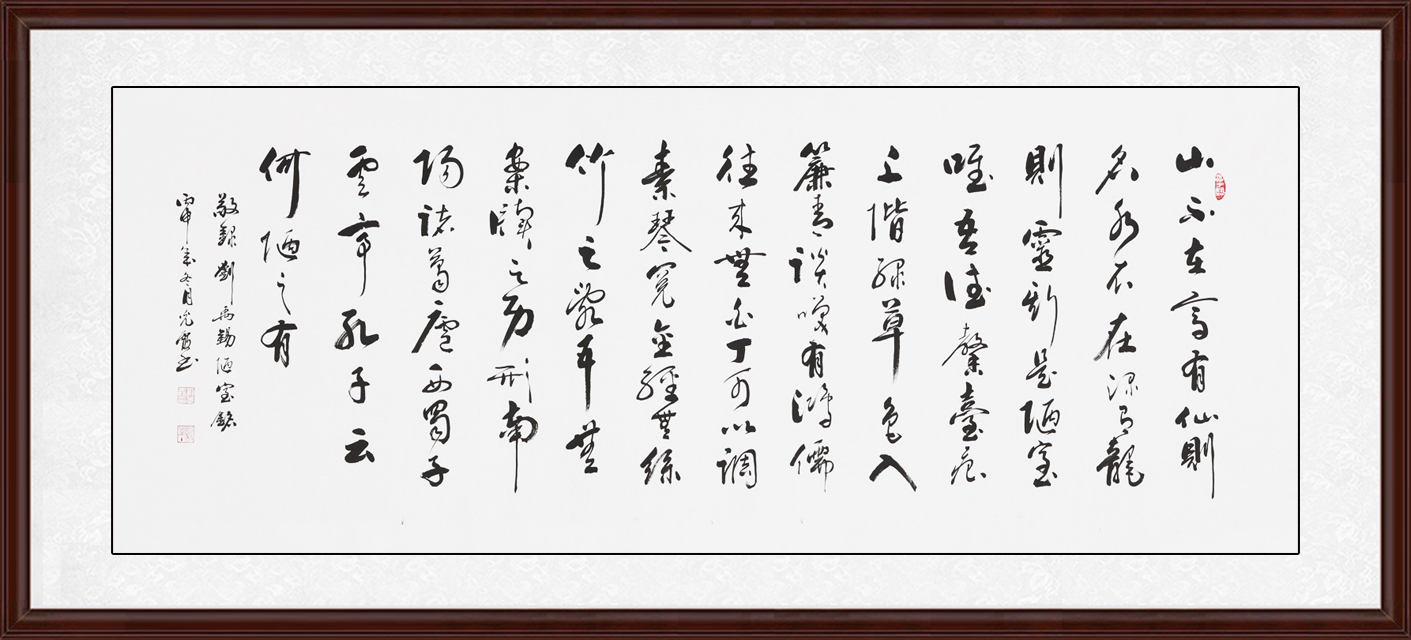 山不在高有仙則
名水不在深有龍
則靈斯是陋室
唯吾德馨臺痕
上階綠草色入
簾青談笑有鴻儒
往來無白丁可以調
素琴閱金經無絲
竹之亂耳無
案牘之勞形南
陽諸葛廬西蜀子
雲亭孔子云
何陋之有
敬錄劉禹錫陋室銘
丙申年冬月光書